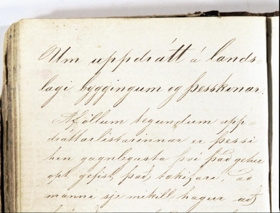 Um uppdrátt á lands
lagi byggingum og þesskonar.
Af öllum tegundum upp-
dráttarlistarinnar er þessi
hin gagnlegasta því það getur
opt
manna sje mikill hagur að